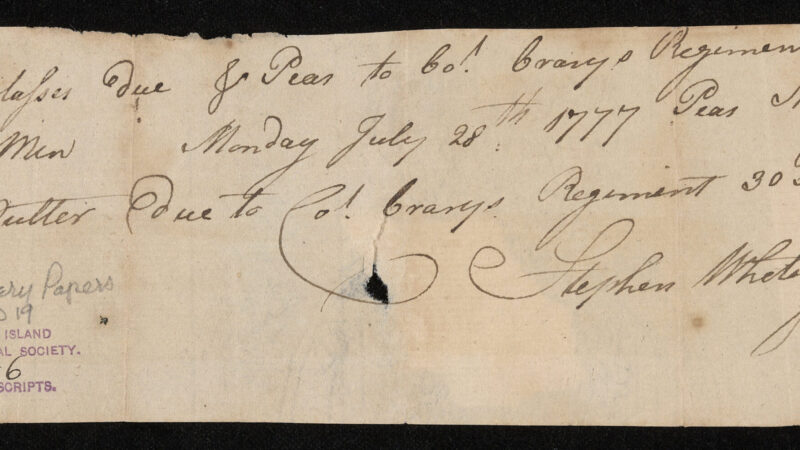 lasses Due & Peas to Col. Crarys Regimen
Men Monday July 28th 1777 Peas
utter Due to Col. Crarys Regiment 30
Stephen
ery Papers
19
ISLAND
AL SOCIETY.
6
SCRIPTS.